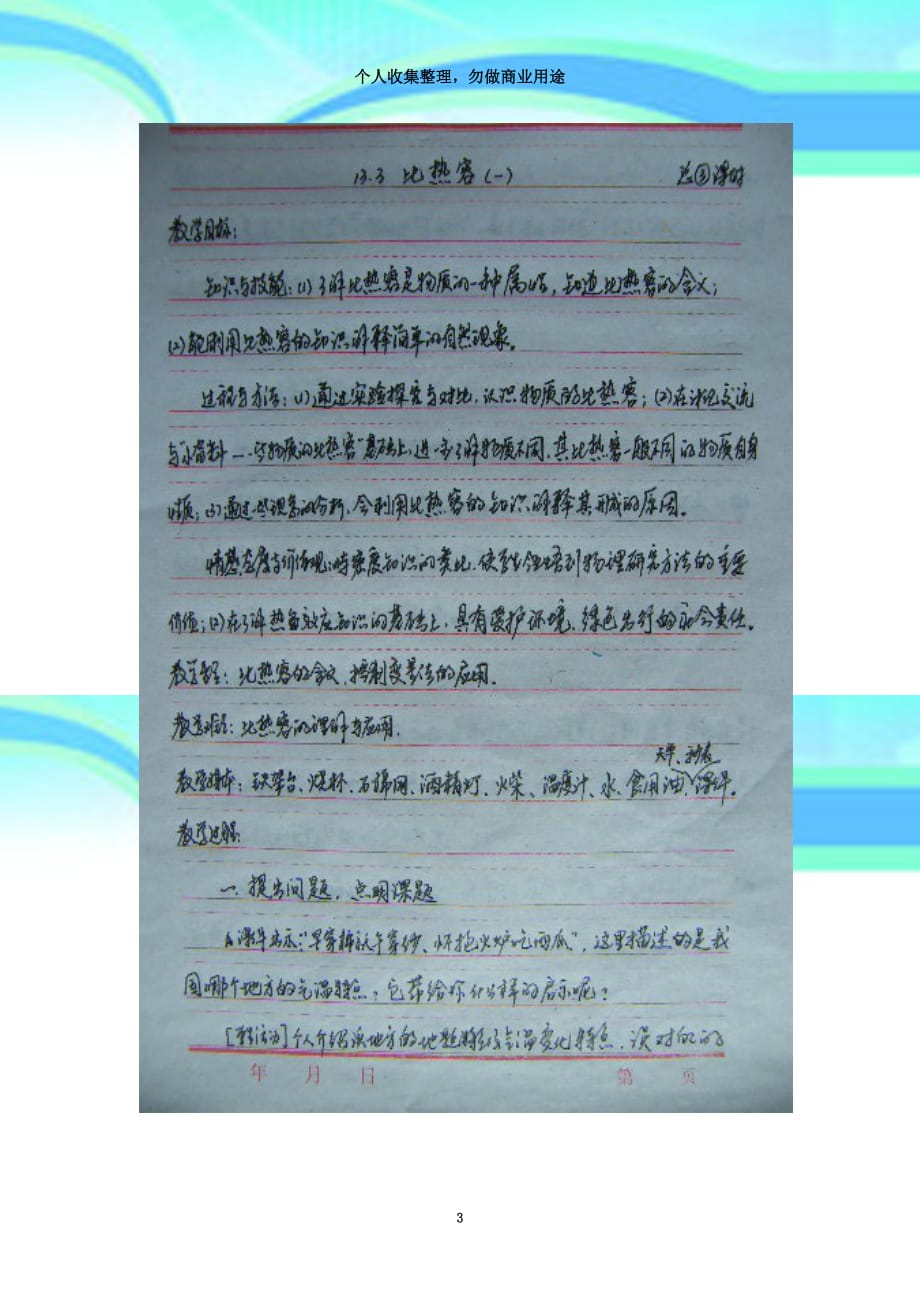 个人收集整理，勿做商业用途
13.3 比热容（一）
总③课时
教学目标：
知识与技能：(1)了解比热容是物质的一种属性，知道比热容的含义；
(2)能利用比热容的知识解释简单的自然现象。
过程与方法：(1)通过实验探究与对比，认识物质的比热容；(2)在讨论交流
与“小资料——物质的比热容”基础上，进一步了解物质不同，其比热容一般不同的物质自身
性质；(3)通过自然现象的分析，会利用比热容的知识解释其形成的原因。
情感态度与价值观：密度知识的类比，使学生领悟到物理研究方法的重要
价值；(2)在了解热岛效应知识的基础上，具有爱护环境、绿色出行的社会责任。
教学重点：比热容的含义、控制变量法的应用。
教学难点：比热容的理解与应用。
天平、秒表
教学器材：铁架台、烧杯、石棉网、酒精灯、火柴、温度计、水、食用油、课件。
教学过程：
一、提出问题，点明课题
课件展示：“早穿棉袄午穿纱、怀抱火炉吃西瓜”，这里描述的是我
国哪个地方的气温特点？它带给你什么样的启示呢？
[学生活动]个人介绍该地方的地题特征气温变化特点，误对的的
年 月 日
第 页
3